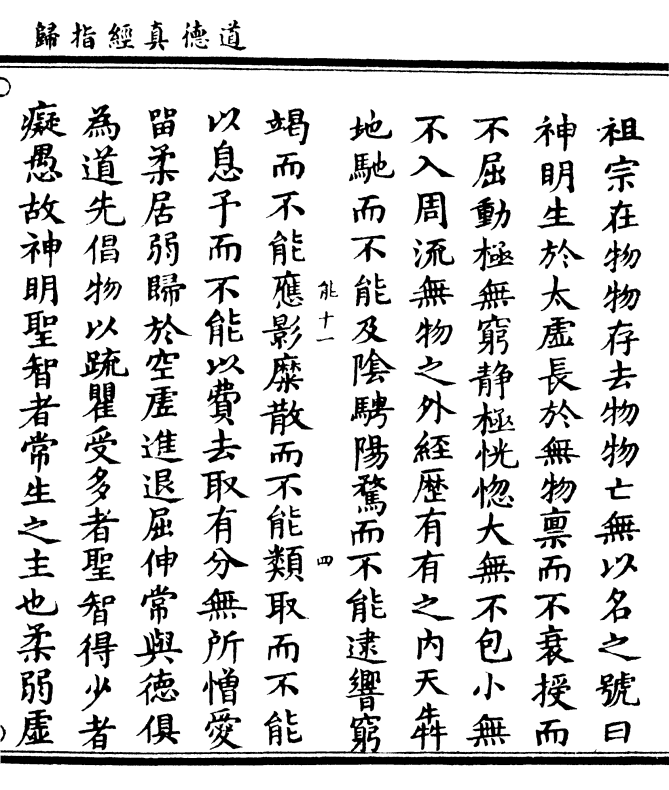 道德真經指歸
祖宗在物物存去物物亡無以名之號曰
神明生於太虛長於無物禀而不衰授而
不屈動極無窮静極恍惚大無不包小無
不入周流無物之外經歷有有之内天犇
地馳而不能及陰騁陽騖而不能逮響窮
能十一
四
竭而不能應影糜散而不能類取而不能
以息予而不能以費去取有分無所憎愛
留柔居弱歸於空虛進退屈伸常與德俱
為道先倡物以疏瞿受多者聖智得少者
癡愚故神明聖智者常生之主也柔弱虛